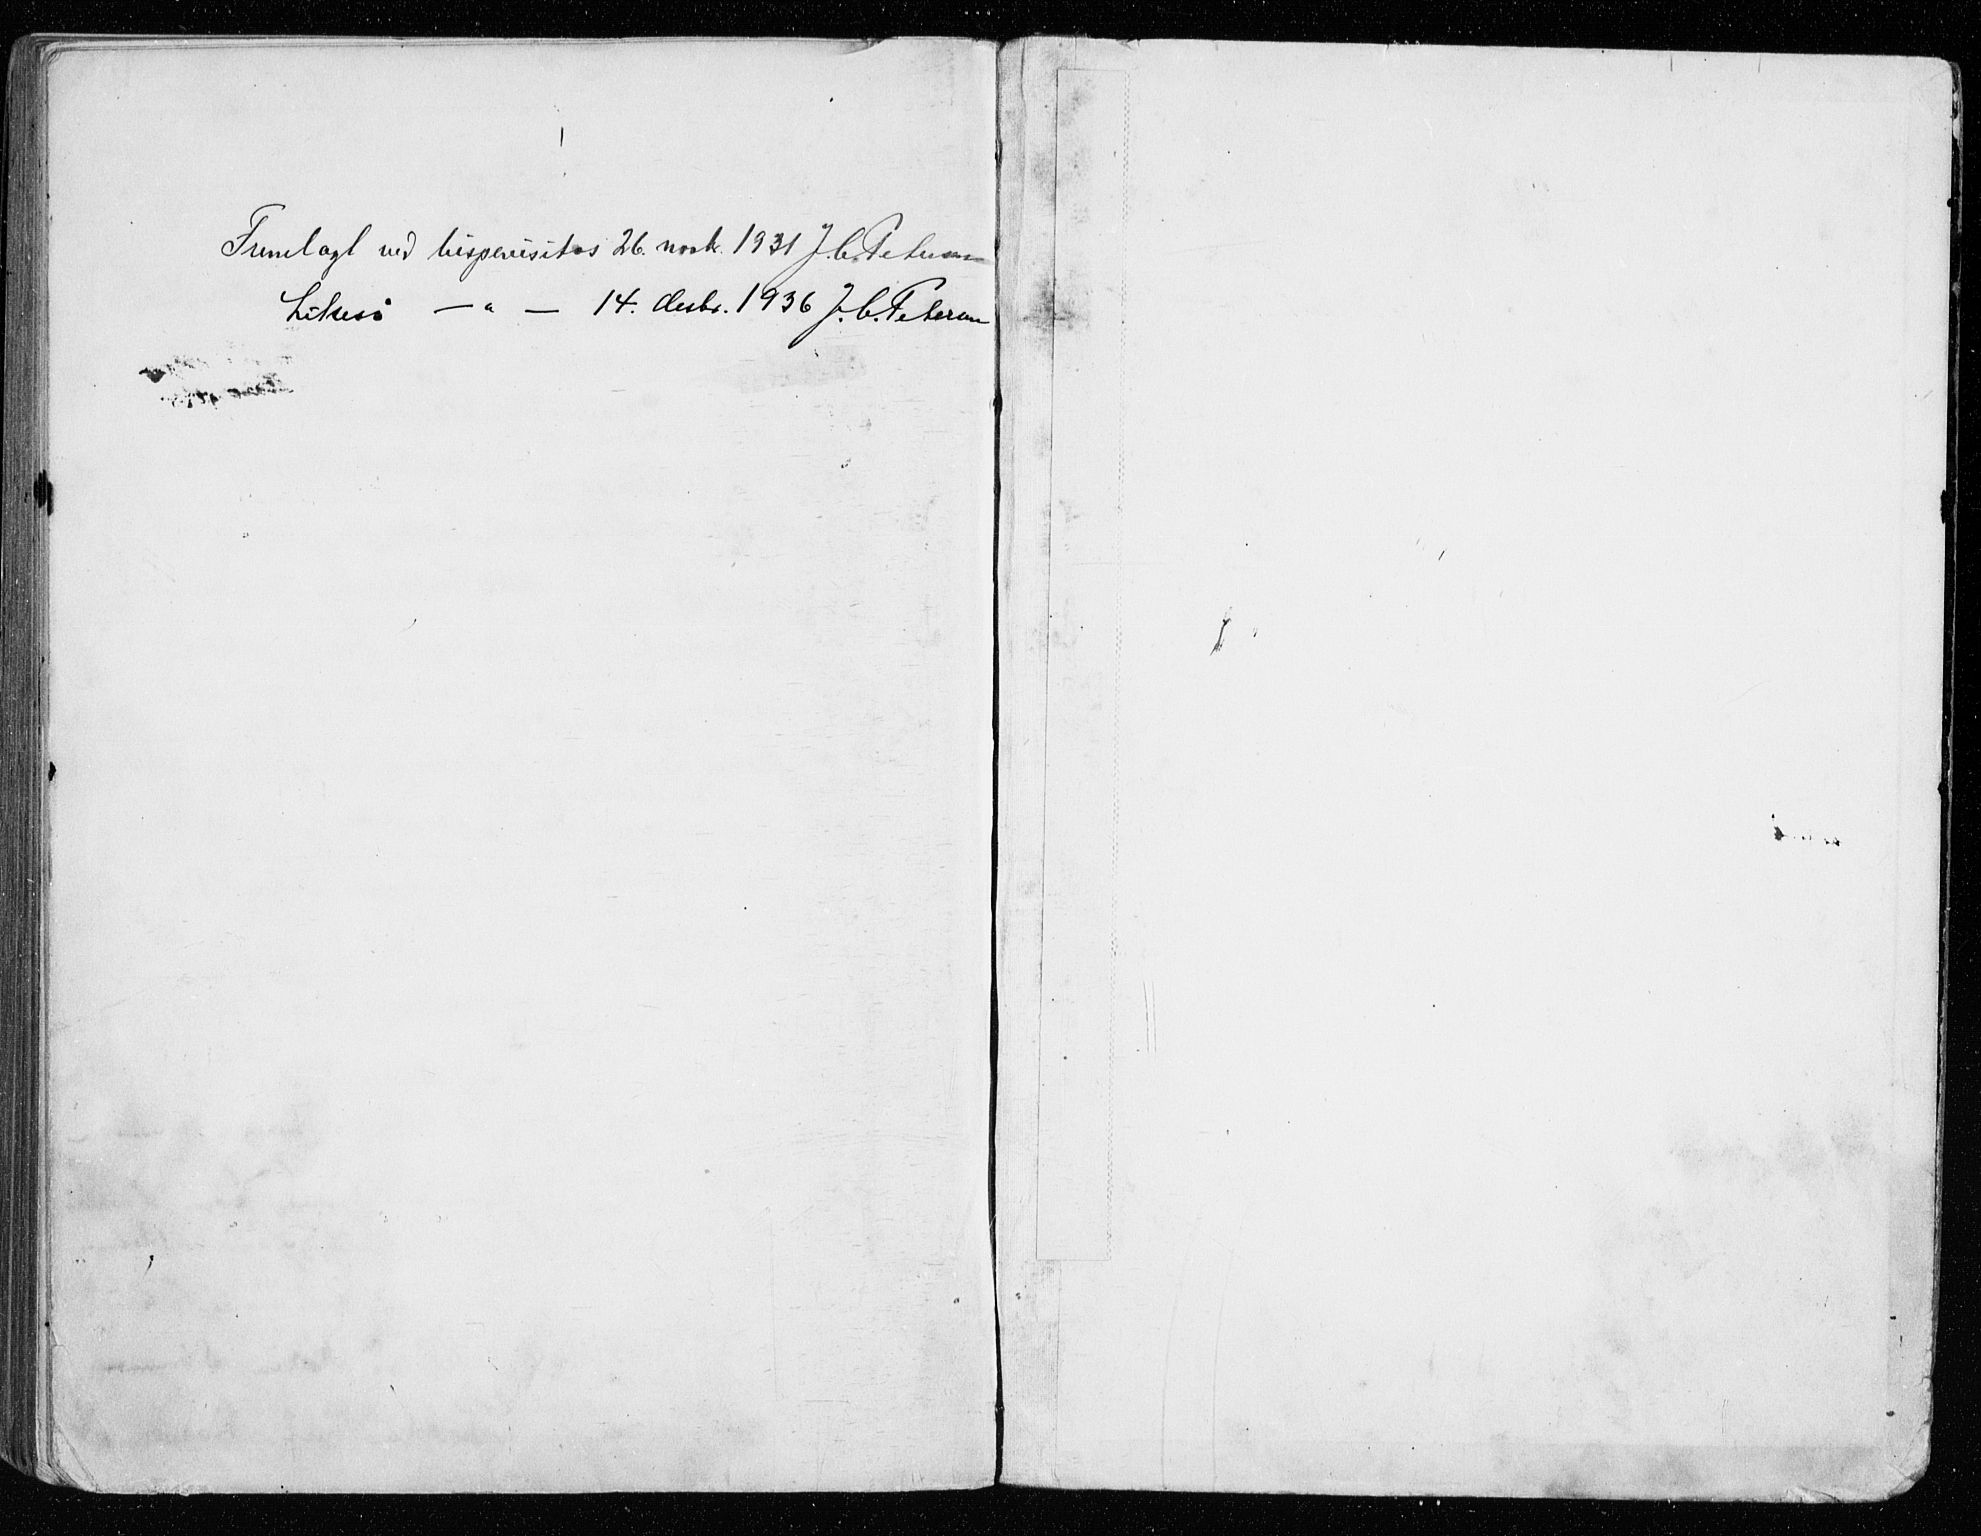 Fremlagt ved bispevisitas 26. novbr. 1931 J. C. Petersen
Likeså — " — 14. desbr. 1936 J. C. Petersen